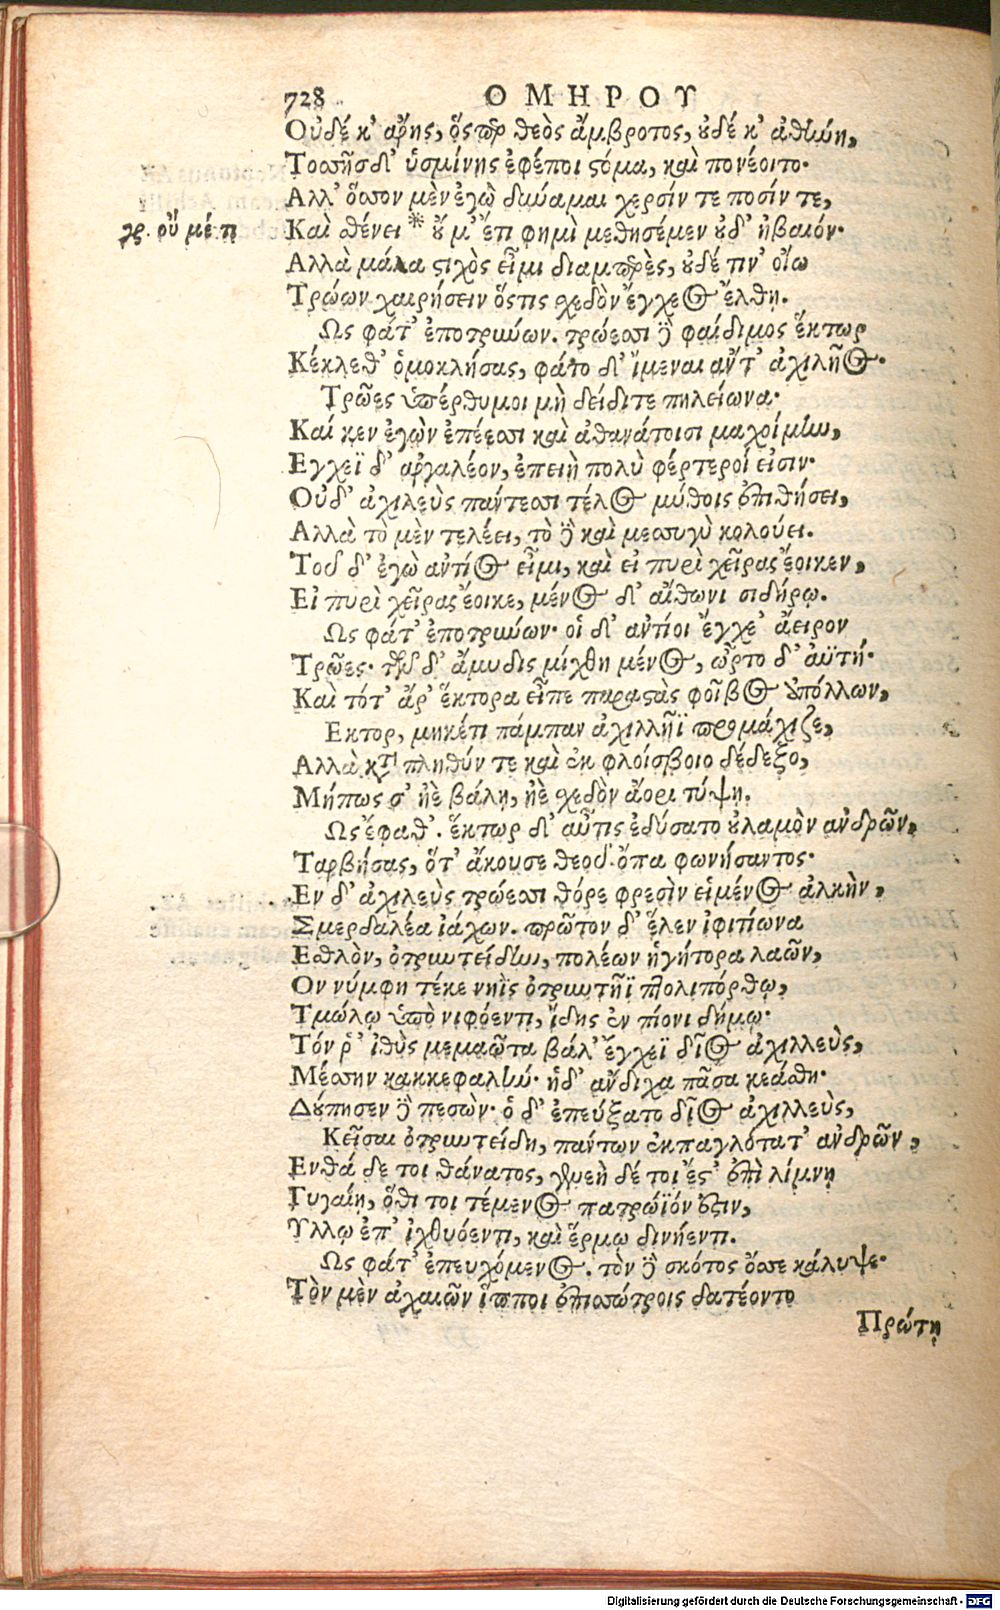 728 ΟΜΗΡΟΥ
Οὐδέ κ' ἄρης, ὅςπερ θεὸς ἄμβροτος, οὐδέ κ' ἀθήνη,
Τοσσῆςδ' ὑσμίνης ἐφέποι στόμα, καὶ πονέοιτο·
Αλλ' ὅσσον μὲν ἐγὼ δύναμαι χερσίν τε ποσίν τε,
γρ. οὔ μέ τι
Καὶ σθένει * οὔ μ' ἔτι φημὶ μεθησέμεν οὐδ' ἠβαιόν·
Αλλὰ μάλα στιχὸς εἶμι διαμπερὲς, οὐδέ τιν' οἴω
Τρώων χαιρήσειν ὅςτις σχεδὸν ἔγχεος ἔλθῃ.
Ως φάτ' ἐποτρύνων. τρώεσσι δὲ φαίδιμος ἕκτωρ
Κέκλεθ' ὁμοκλήσας, φάτο δ' ἴμεναι αὖτ' ἀχιλῆος·
Τρῶες ὑπέρθυμοι μὴ δείδιτε πηλείωνα·
Καί κεν ἐγὼν ἐπέεσσι καὶ ἀθανάτοισι μαχοίμην,
Εγχεϊ δ' ἀργαλέον, ἐπειὴ πολὺ φέρτεροί εἰσιν·
Οὐδ' ἀχιλεὺς πάντεσσι τέλος μύθοις ἐπιθήσει,
Αλλὰ τὸ μὲν τελέει, τὸ δὲ καὶ μεσσυγὺ κολούει.
Τοῦ δ' ἐγὼ αντίος εἶμι, καὶ εἰ πυρὶ χεῖρας ἔοικεν,
Εἰ πυρὶ χεῖρας ἔοικε, μένος δ' αἴθωνι σιδήρῳ.
Ως φάτ' ἐποτρύνων· οἱ δ' αντίοι ἔγχε' ἄειρον
Τρῶες· τῶν δ' ἄμυδις μίχθη μένος, ὦρτο δ' ἀϋτή·
Καὶ τότ' ἄρ' ἕκτορα εἶπε παραστὰς φοῖβος ἀπόλλων,
Εκτορ, μηκέτι πάμπαν ἀχιλλῆϊ προμάχιζε,
Αλλὰ κατὰ πληθύν τε καὶ ἐκ φλοίσβοιο δέδεξο,
Μήπως σ' ἠὲ βάλῃ, ἠὲ σχεδὸν ἄορι τύψῃ.
Ως ἔφαθ'. ἕκτωρ δ' αὖτις ἐδύσατο οὐλαμὸν ανδρῶν,
Ταρβήσας, ὅτ' ἄκουσε θεοῦ ὄπα φωνήσαντος·
Εν δ' ἀχιλεὺς τρώεσσι θόρε φρεσὶν εἱμένος ἀλκὴν,
Σμερδαλέα ἰάχων. πρῶτον δ' ἕλεν ἰφιτίωνα
Εσθλὸν, ὀτρυντείδην, πολέων ἡγήτορα λαῶν,
Ον νύμφη τέκε νηῒς ὀτρυντῆϊ πτολιπόρθῳ,
Τμώλῳ ὑπὸ νιφόεντι, ἵδης ἐν πίονι δήμῳ·
Τόν ῥ' ἰθὺς μεμαῶτα βάλ' ἔγχεϊ δῖος ἀχιλλεὺς,
Μέσσην κακκεφαλήν· ἡδ' ἄνδιχα πᾶσα κεάσθη·
Δούπησεν δὲ πεσὼν· ὁ δ' ἐπεύξατο δῖος ἀχιλλεὺς,
Κεῖσαι ὀτρυντείδη, πάντων ἐκπαγλότατ' ανδρῶν,
Ενθά δε τοι θάνατος, γενεὴ δέ τοι ἔστ' ἐπὶ λίμνῃ
Γυγαίῃ, ὅθι τοι τέμενος πατρώϊόν ἐστιν,
Υλλῳ ἐπ' ἰχθυόεντι, καὶ ἕρμῳ δινήεντι.
Ως φάτ' ἐπευχόμενος. τὸν δὲ σκότος ὄσσε κάλυψε·
Τὸν μὲν ἀχαιῶν ἵπποι ἐπισσώτροις δατέοντο
Πρώτῃ
Digitalisierung gefördert durch die Deutsche Forschungsgemeinschaft - DFG